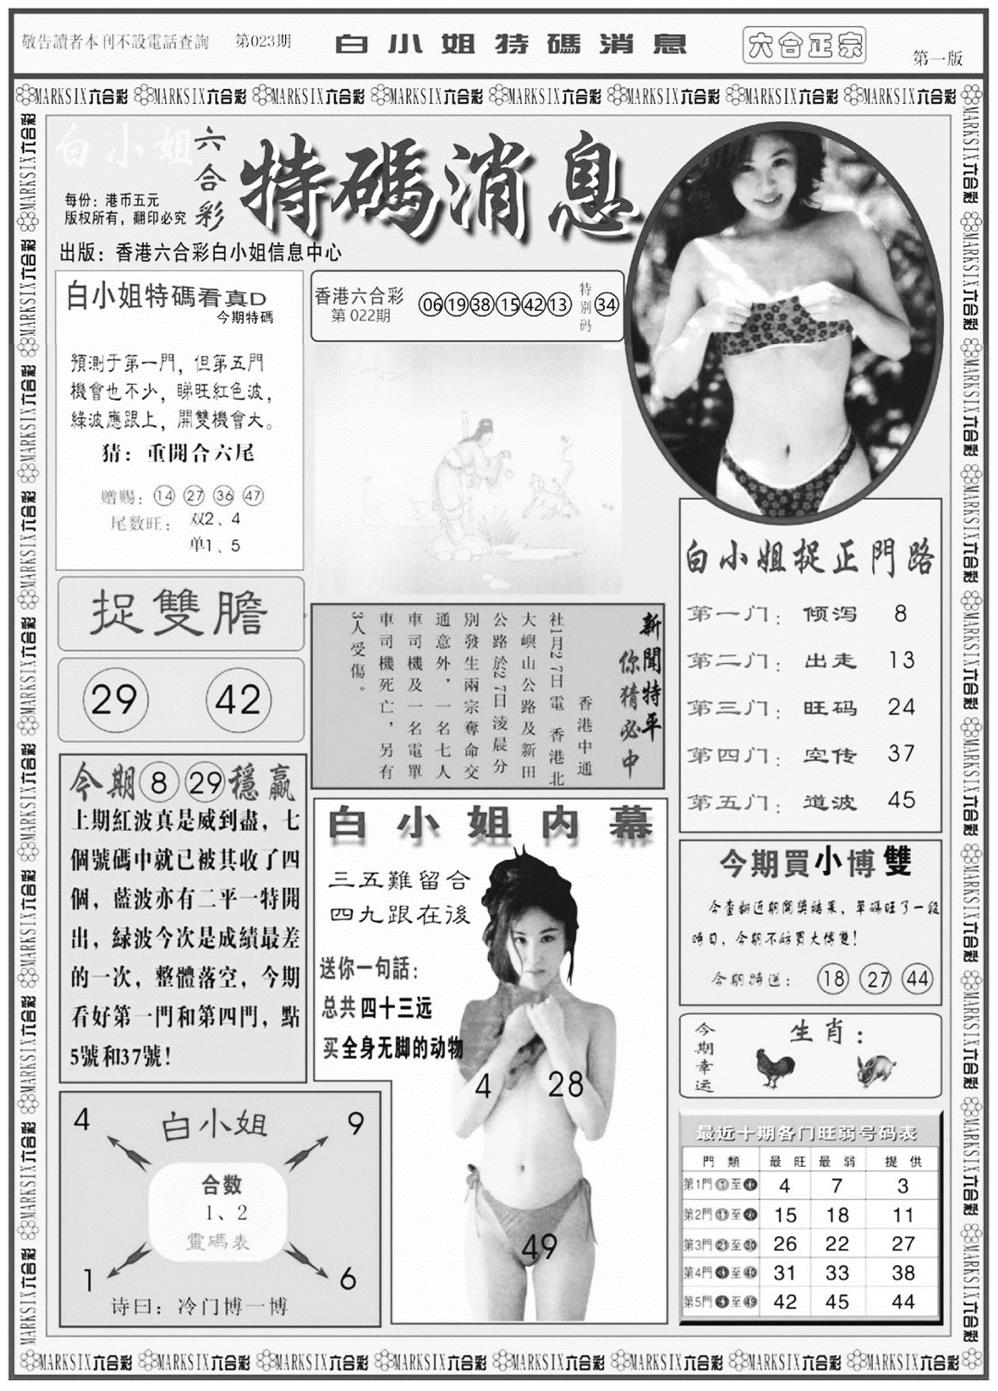 敬告讀者本刊不設電話查詢
第023期
白小姐特碼消息
六合正宗
第一版
MARKSIX六合彩 MARKSIX六合彩 MARKSIX六合彩 MARKSIX六合彩 MARKSIX六合彩 MARKSIX六合彩 MARKSIX六合彩 MARKSIX六合彩
白小姐
六合彩
特碼消息
每份：港币五元
版权所有，翻印必究
出版：香港六合彩白小姐信息中心
白小姐特碼看真D
今期特碼
預測于第一門，但第五門
機會也不少，睇旺紅色波，
綠波應跟上，開雙機會大。
猜：重開合六尾
赠赐：14 27 36 47
尾数旺：双2、4
单1、5
香港六合彩
第 022期
06 19 38 15 42 13
特别码
34
捉雙膽
29 42
新聞特平
你猜必中
香港中通
社1月27日電 香港北
大嶼山公路及新田
公路於27日淩晨分
別發生兩宗奪命交
通意外，一名七人
車司機及一名電單
車司機死亡，另有
3人受傷。
白小姐捉正門路
第一门：倾泻 8
第二门：出走 13
第三门：旺码 24
第四门：空传 37
第五门：道波 45
今期 8 29 穩贏
上期紅波真是威到盡，七
個號碼中就已被其收了四
個，藍波亦有二平一特開
出，緑波今次是成績最差
的一次，整體落空，今期
看好第一門和第四門，點
5號和37號！
白小姐内幕
三五難留合
四九跟在後
送你一句話：
总共四十三远
买全身无脚的动物
4 28
49
今期買小博雙
今查翻近期開獎結果，單碼旺了一段
時日，今期不妨買大博雙！
今期特送：18 27 44
今期幸运
生肖：
白小姐
4 9
合数
1、2
靈碼表
1 6
诗曰：冷门博一博
最近十期各门旺弱号码表
門類 最旺 最弱 提供
第1門①至⑩ 4 7 3
第2門⑪至⑳ 15 18 11
第3門㉑至㉚ 26 22 27
第4門㉛至㊵ 31 33 38
第5門㊶至㊾ 42 45 44
MARKSIX六合彩 MARKSIX六合彩 MARKSIX六合彩 MARKSIX六合彩 MARKSIX六合彩 MARKSIX六合彩 MARKSIX六合彩 MARKSIX六合彩